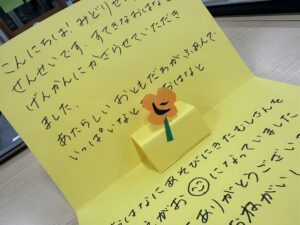 こんにちは！みどりせ
せんせいです。すてきなおはな
げんかんにかざらせていただき
ました。
あたらしいおともだちがふあんで
いっぱい
おはなと
おはなにあそびにきたむしさんを
えがお になっていました
ありがとうござい
おねがいし